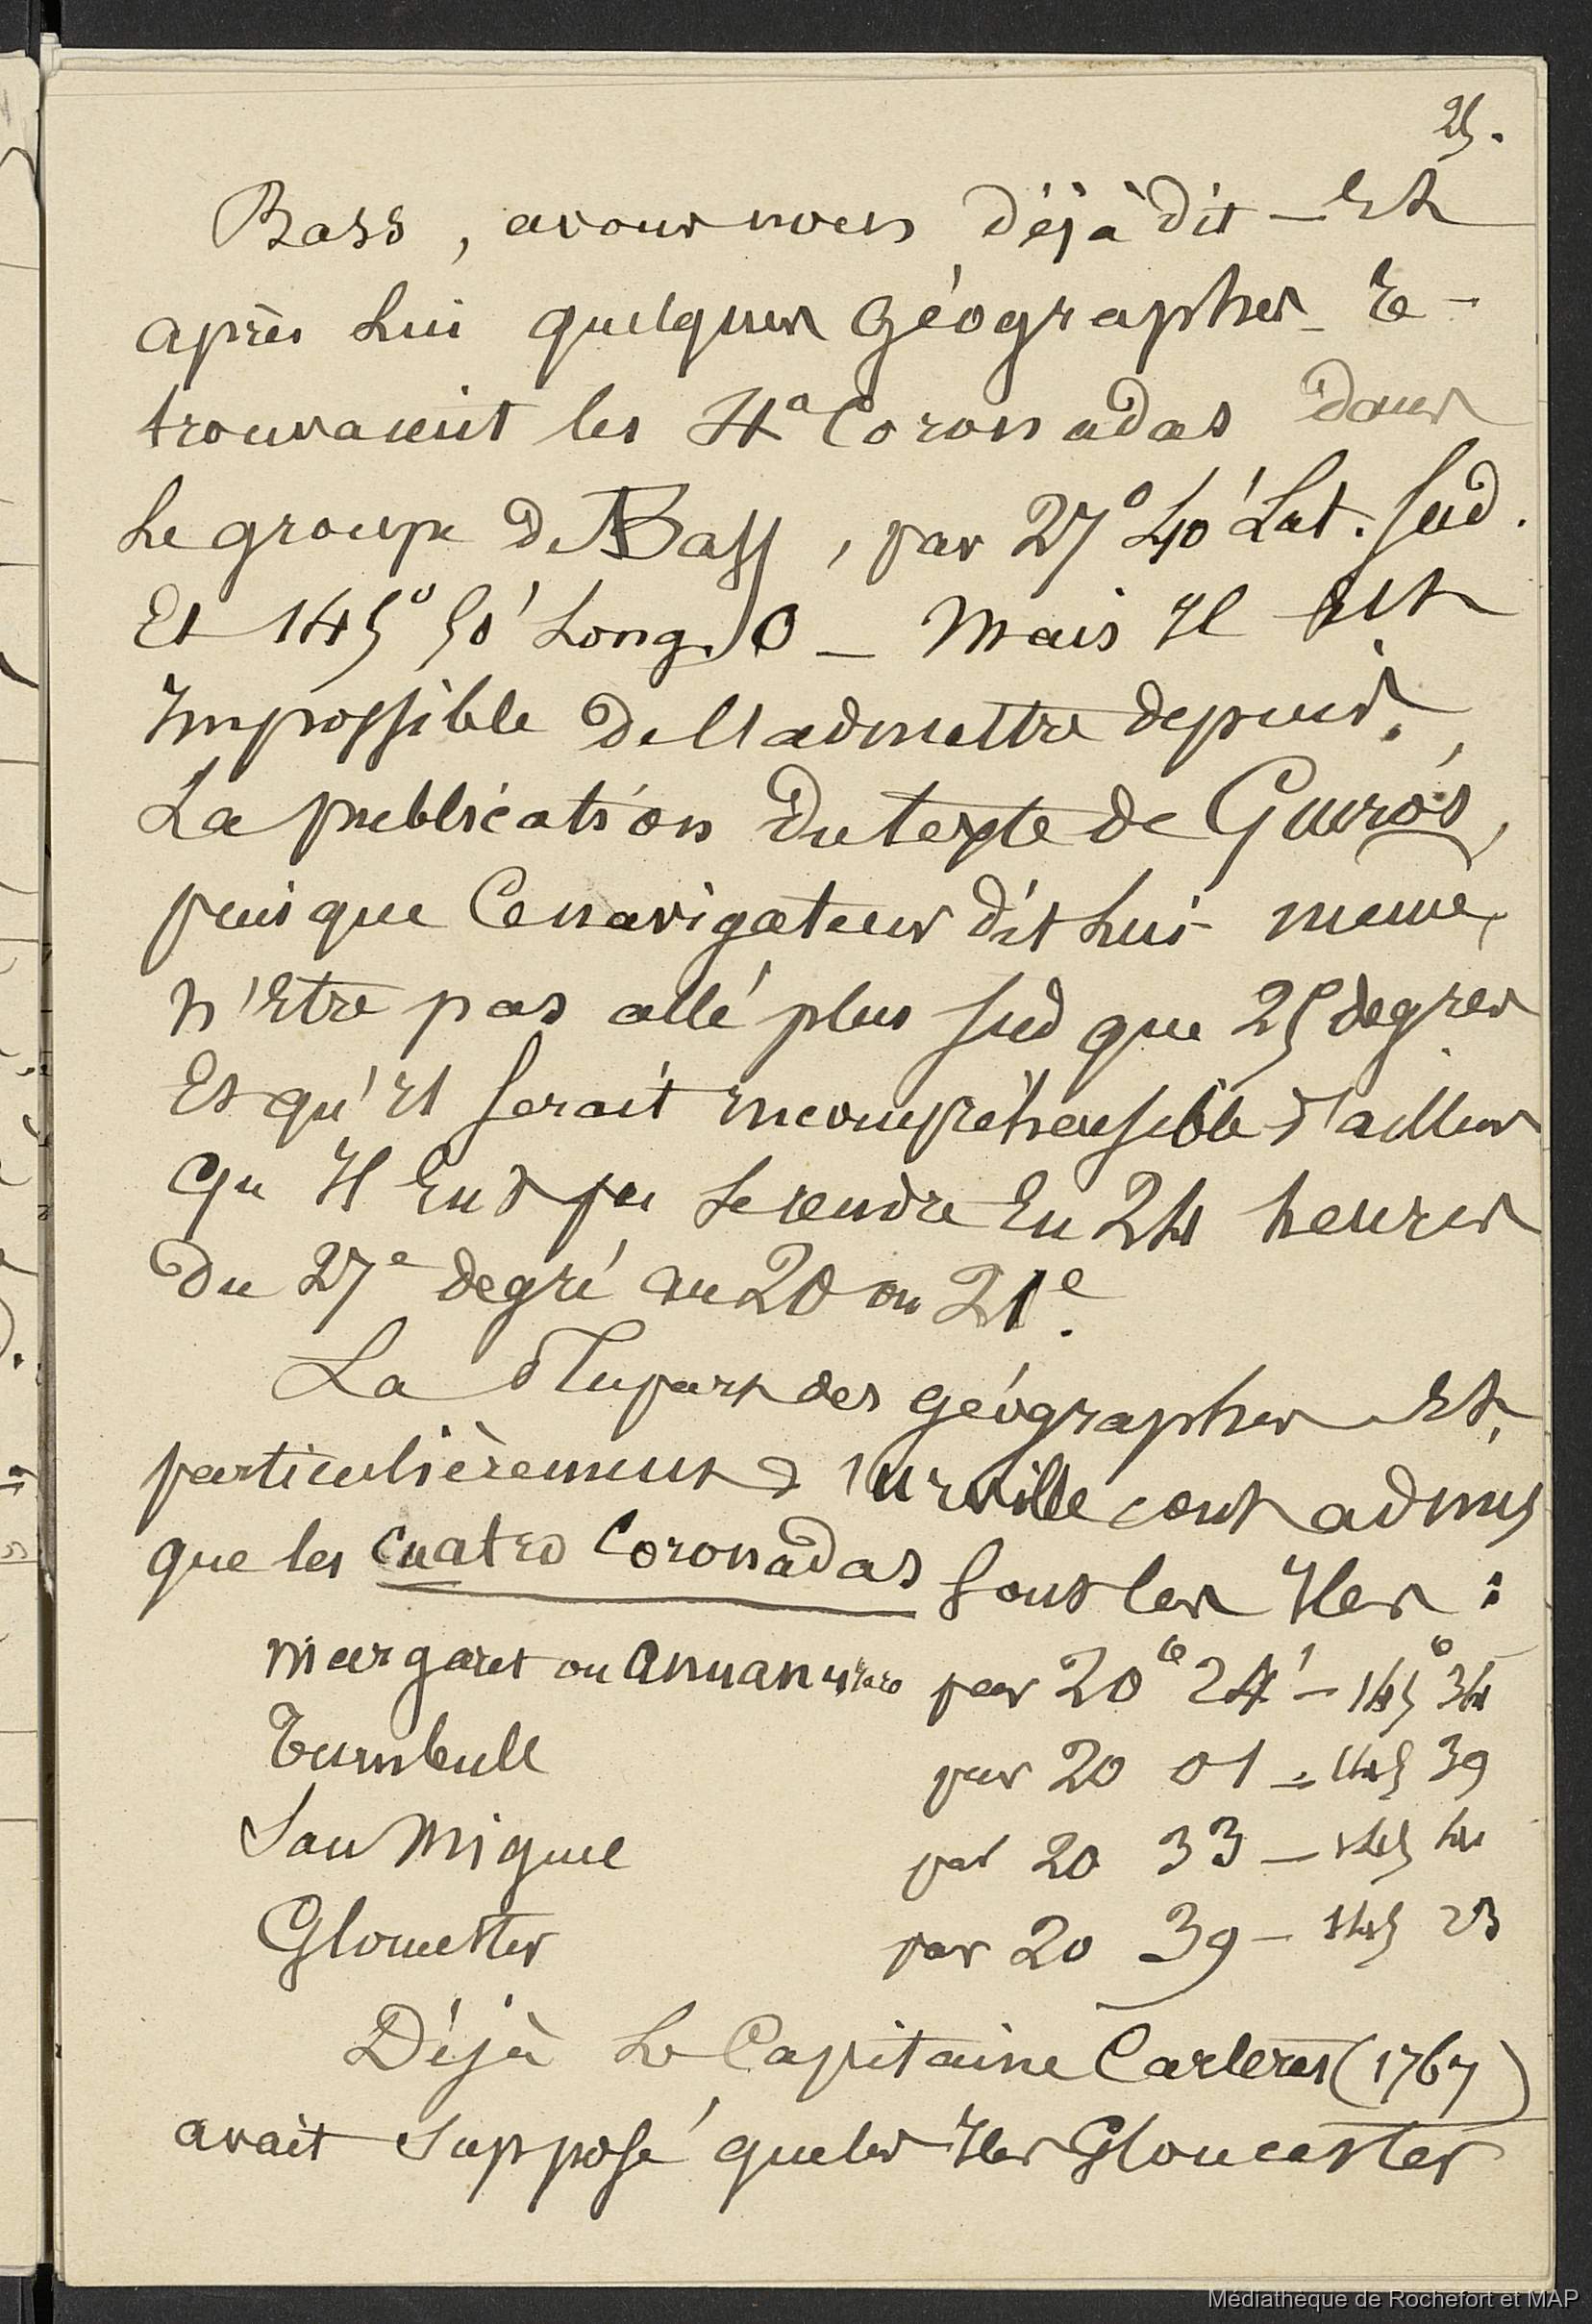 25.
Bass, avons nous déjà dit - Et
après Lui quelques Géographes re-
trouvaient les 4a Coronadas dans
Le groupe de Bass, par 27° 40' Lat. Sud.
Et 145° 50' Long. O - Mais Il Est
Impossible de l'admettre depuis
La publication du texte de Quirós,
puisque Ce navigateur dit Lui même
n'Etre pas allé plus Sud que 25 degrés
Et qu'Il Serait Incompréhensible d'ailleurs
Qu'Il Eut pu Se rendre En 24 heures
Du 27e degré au 20 ou 21e.
La Plupart des géographes Et
particulièrement d'Urville ont admis
que les Cuatro Coronadas Sont les Iles :
Margaret ou par 20° 24' - 145° 34
Turnbull par 20 01 - 145 39
San Miguel par 20 33 - 145
Gloucester par 20 39 - 145 23
Déjà Le Capitaine Carteret (1767)
avait Supposé que les Iles Gloucester
Médiathèque de Rochefort et MAP